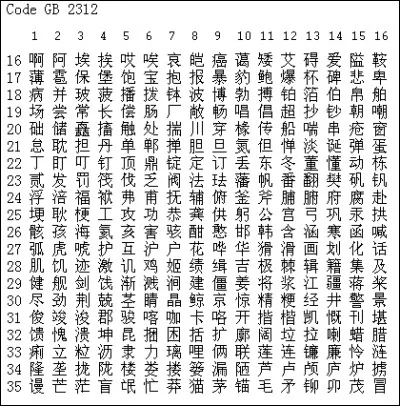 Code GB 2312
1 2 3 4 5 6 7 8 9 10 11 12 13 14 15 16
16 啊 阿 埃 挨 哎 唉 哀 皑 癌 蔼 矮 艾 碍 爱 隘 鞍
17 薄 雹 保 堡 饱 宝 抱 报 暴 豹 鲍 爆 杯 碑 悲 卑
18 病 并 玻 菠 播 拨 钵 波 博 勃 搏 铂 箔 伯 帛 舶
19 场 尝 常 长 偿 肠 厂 敞 畅 唱 倡 超 抄 钞 朝 嘲
20 础 储 矗 搐 触 处 揣 川 穿 椽 传 船 喘 串 疮 窗
21 怠 耽 担 丹 单 郸 掸 胆 旦 氮 但 惮 淡 诞 弹 蛋
22 丁 盯 叮 钉 顶 鼎 锭 定 订 丢 东 冬 董 懂 动 栋
23 贰 发 罚 筏 伐 乏 阀 法 珐 藩 帆 番 翻 樊 矾 钒
24 浮 涪 福 袱 弗 甫 抚 辅 俯 釜 斧 脯 腑 府 腐 赴
25 埂 耿 梗 工 攻 功 恭 龚 供 躬 公 宫 弓 巩 汞 拱
26 骸 孩 海 氦 亥 害 骇 酣 憨 邯 韩 含 涵 寒 函 喊
27 弧 虎 唬 护 互 沪 户 花 哗 华 猾 滑 画 划 化 话
28 肌 饥 迹 激 讥 鸡 姬 绩 缉 吉 极 棘 辑 籍 集 及
29 健 舰 剑 饯 渐 溅 涧 建 僵 姜 将 浆 江 疆 蒋 桨
30 尽 劲 荆 兢 茎 睛 晶 鲸 京 惊 精 粳 经 井 警 景
31 俊 竣 浚 郡 骏 喀 咖 卡 咯 开 揩 楷 凯 慨 刊 堪
32 馈 愧 溃 坤 昆 捆 困 括 扩 廓 阔 垃 拉 喇 蜡 腊
33 痢 立 粒 沥 隶 力 璃 哩 俩 联 莲 连 镰 廉 怜 涟
34 隆 垄 拢 陇 楼 娄 搂 篓 漏 陋 芦 卢 颅 庐 炉 掳
35 谩 芒 茫 盲 氓 忙 莽 猫 茅 锚 毛 矛 铆 卯 茂 冒